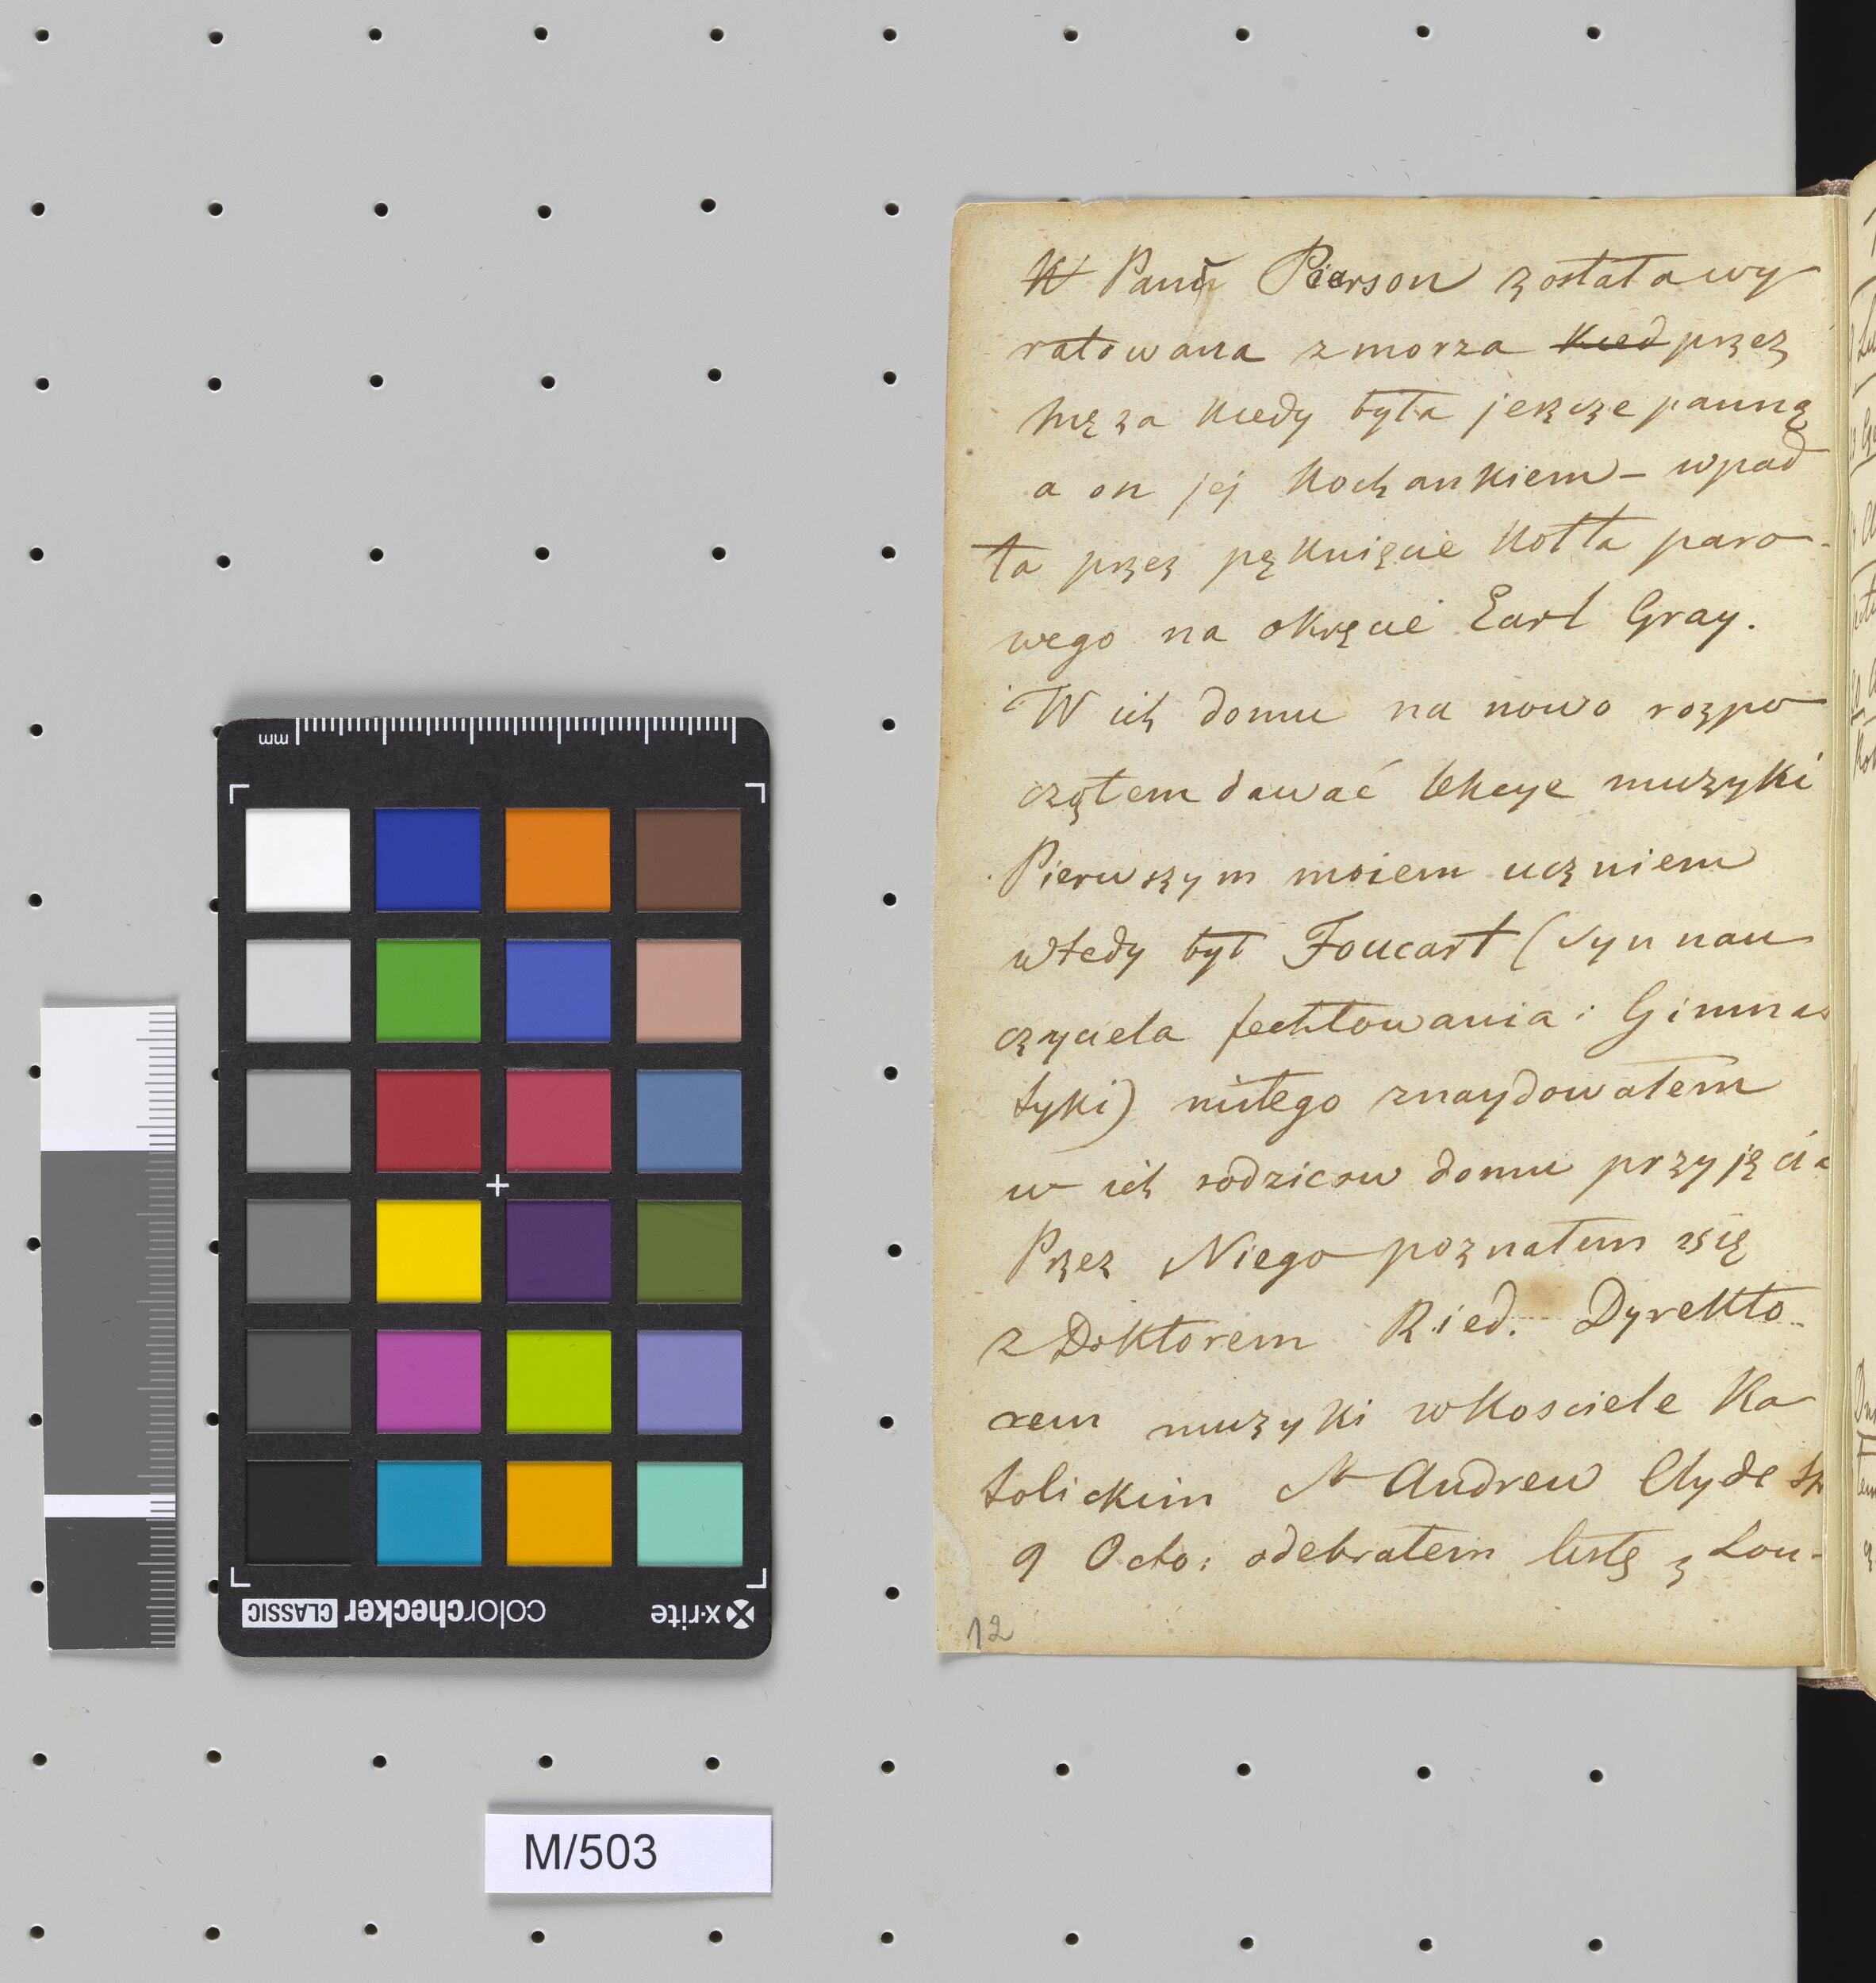 Pani Pierson została wy
ratowana z morza kied przez
męza kiedy była jeszcze panną
a on jej kochankiem – wpad
ła przez pęknięcie kotła paro-
wego na okręcie Earl Gray.
W ich domu na nowo rozpo
cząłem dawać lekcye muzyki
Pierwszym moiem uczniem
wtedy był Foucart (syn nau
czyciela fechtowania i Gimnas
tyki) miłego znaydowałem
w ich rodzicow domu przyjęcia
Przez Niego poznałem się
z Doktorem Ried. Dyrekto-
rem muzyki w kosciele Ka
tolickim St Andrew Clyde St
9 Octo: odebrałem listę z Lon-
12
mm
x-rite
colorchecker CLASSIC
M/503